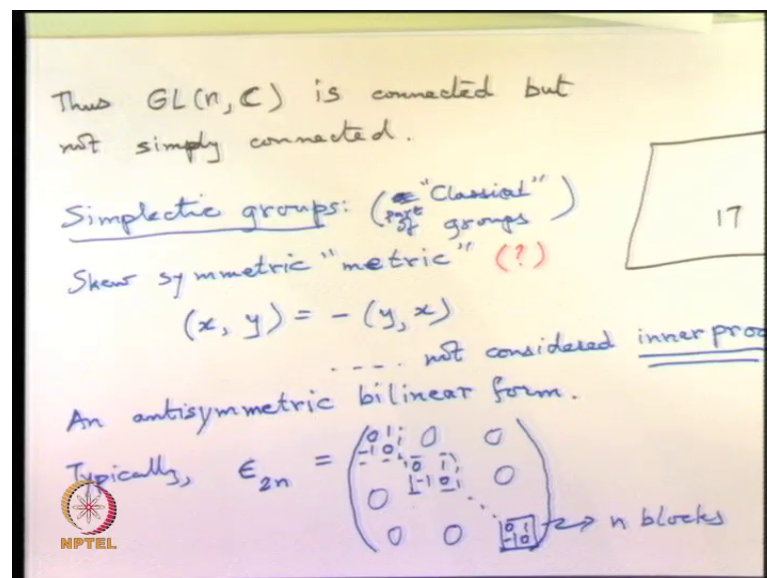 Thus GL(n, C) is connected but
not simply connected.
Simplectic groups: ( "Classical"
part of groups )
17
Skew symmetric "metric" (?)
(x, y) = - (y, x)
.... not considered inner proo
An antisymmetric bilinear form.
Typically, ϵ2n = ( 0 1 0 0
-1 0 0 1
0 -1 0 0
0 0 0 1 → n blocks
-1 0 )
NPTEL